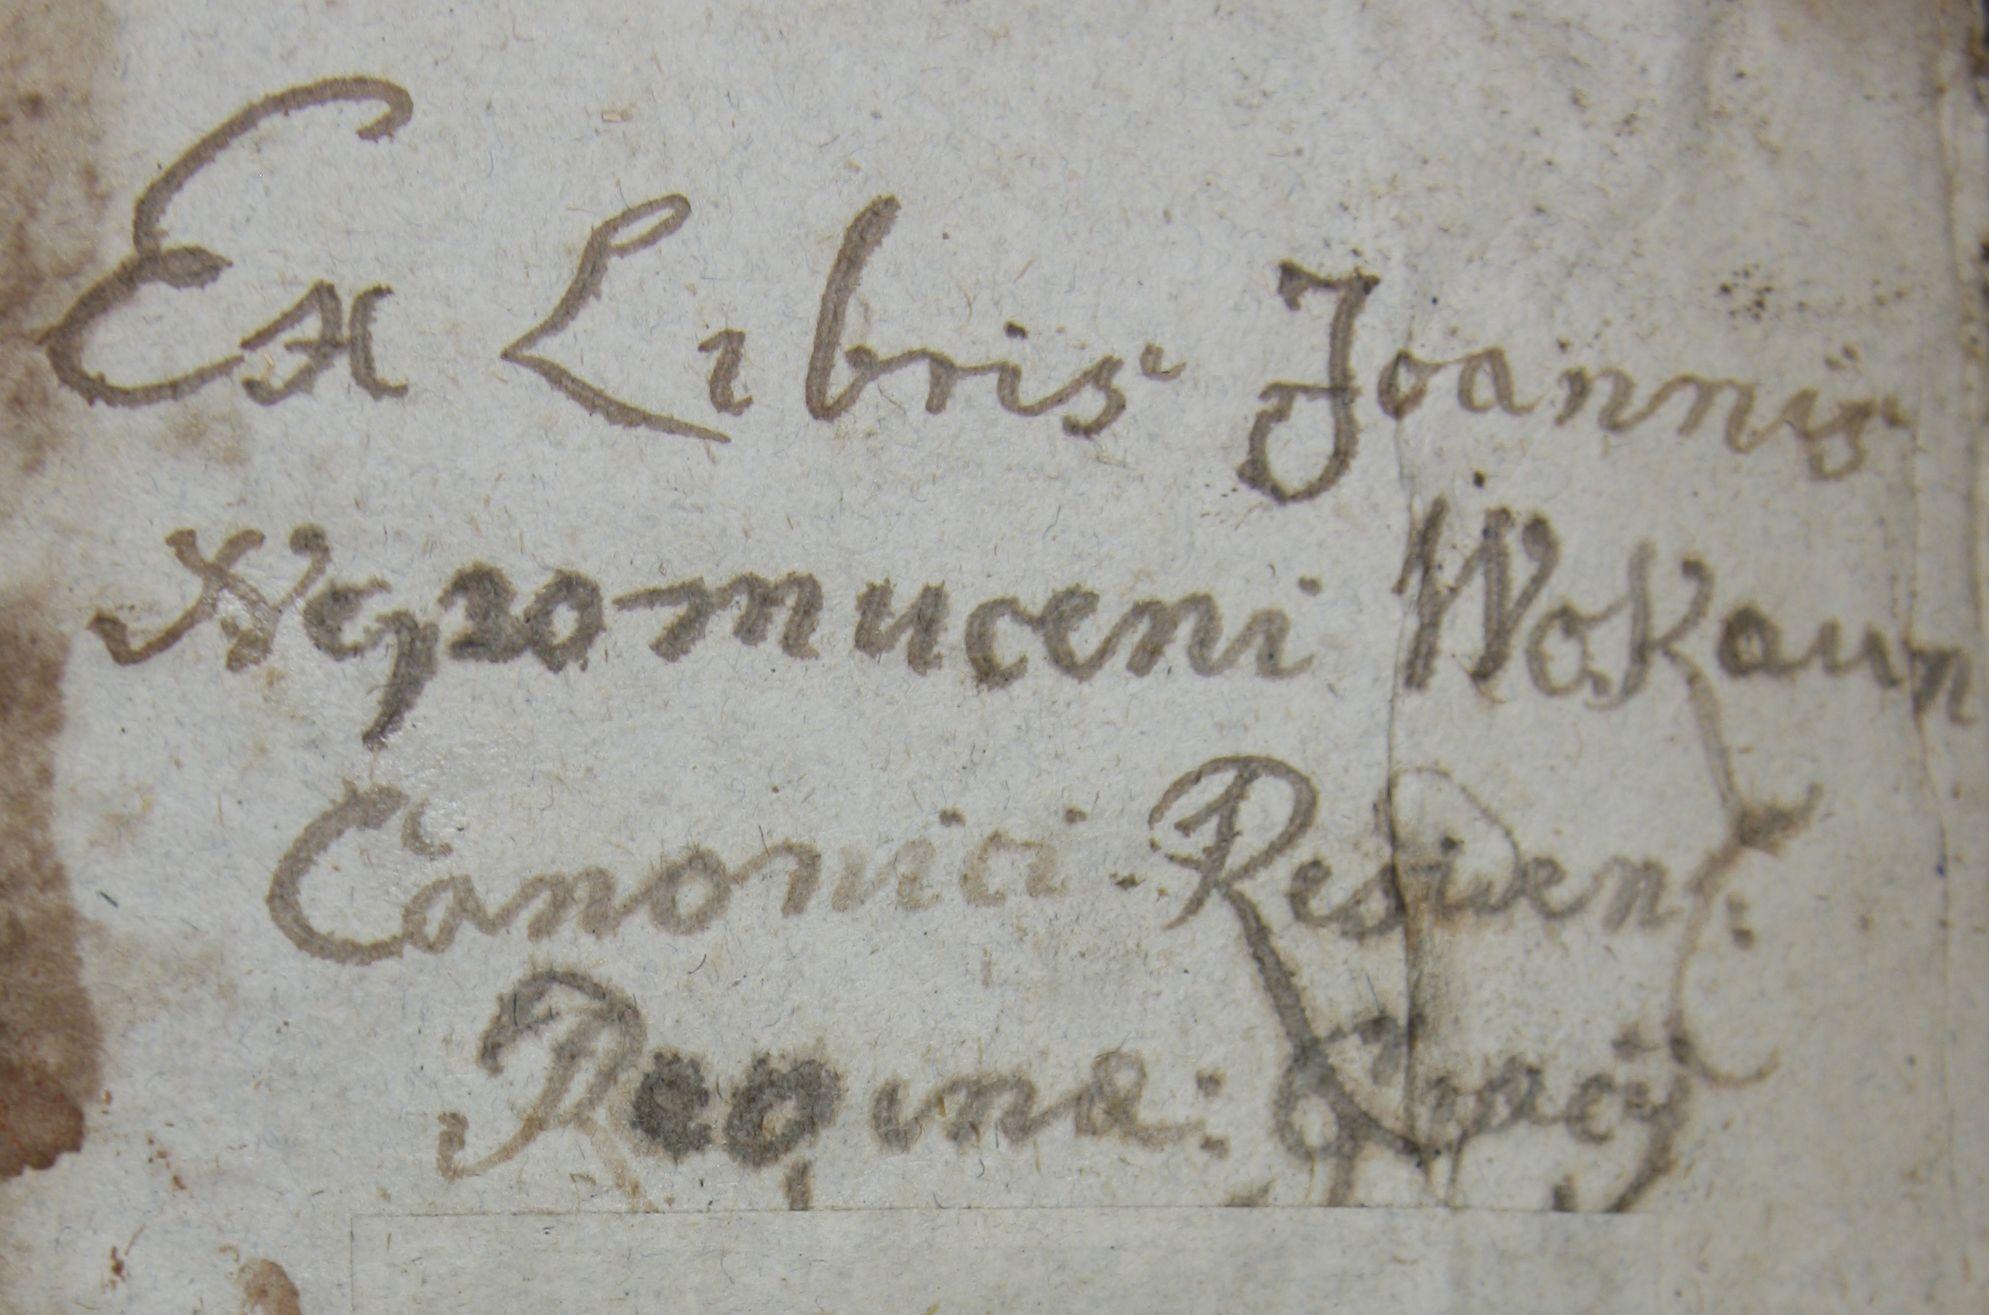 Ex Libris Joannis
Nepomuceni Wokaun
Canonici Residen:
Reginæ: